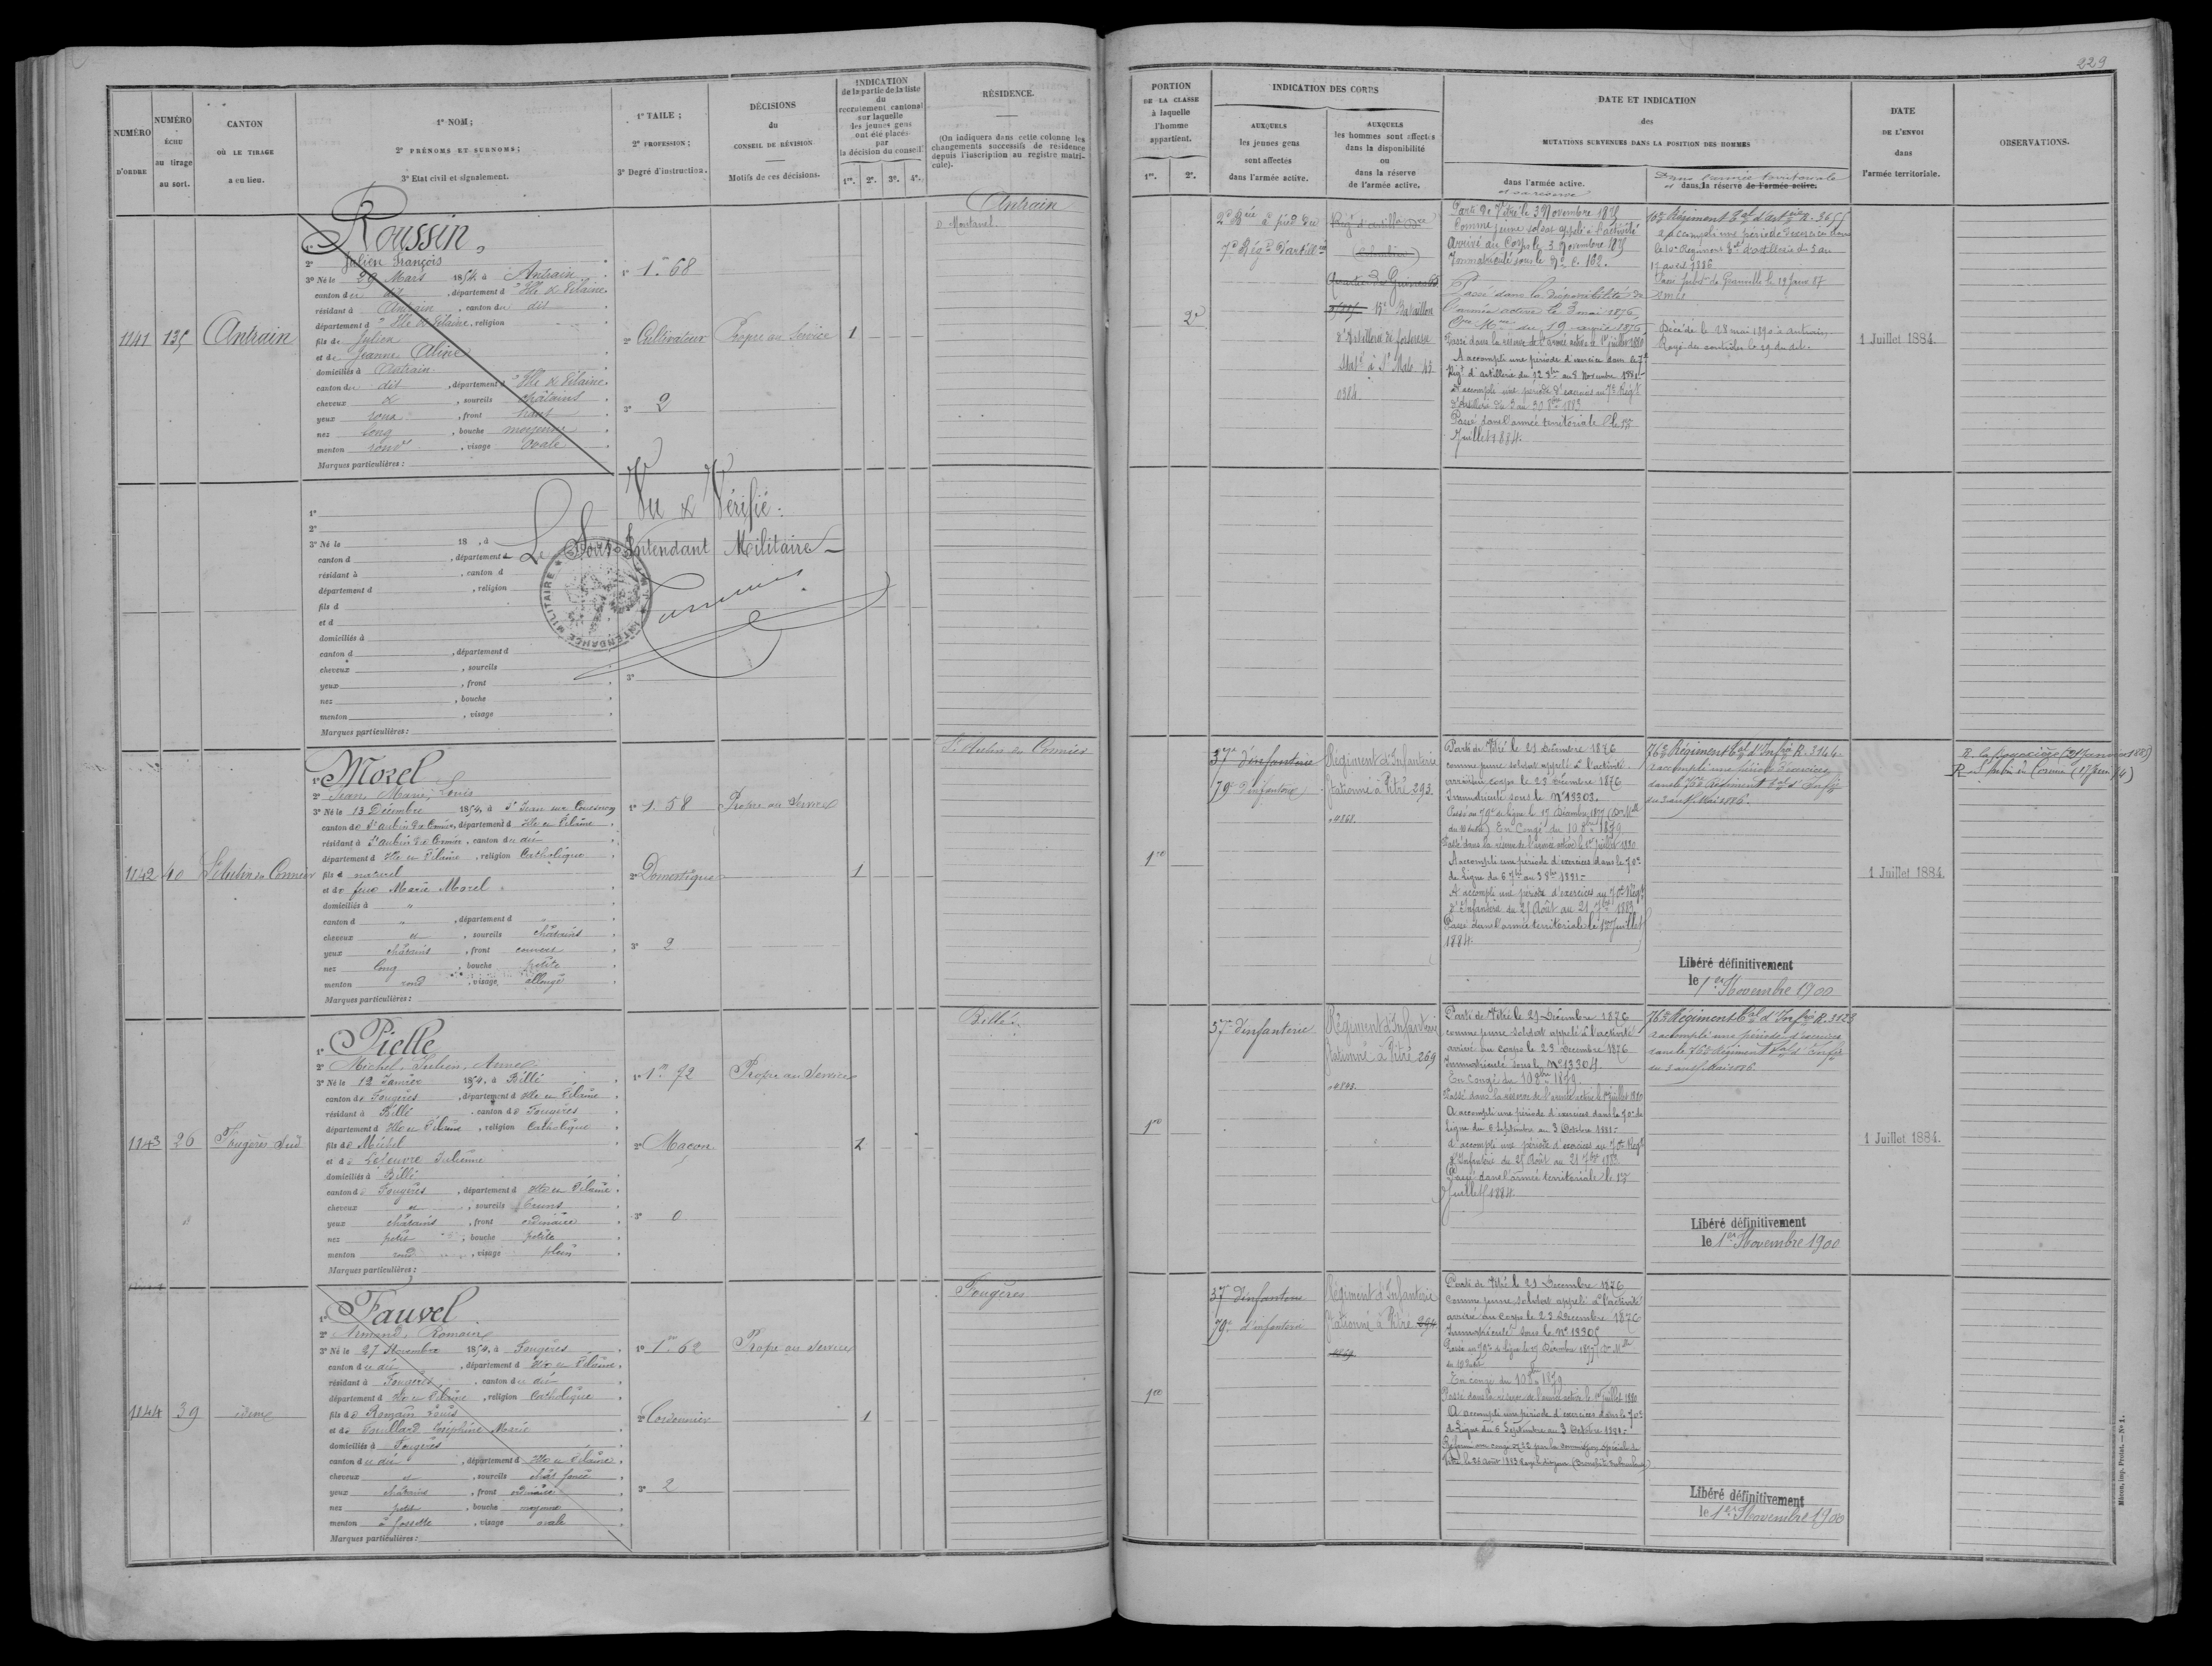 229
NUMÉRO
D'ORDRE
NUMÉRO
ÉCHU
au tirage
au sort.
CANTON
OÙ LE TIRAGE
a eu lieu.
1° NOM ;
2° PRÉNOMS ET SURNOMS ;
3° Etat civil et signalement.
1° TAILE ;
2° PROFESSION ;
3° Degré d'instruction.
DÉCISIONS
du
CONSEIL DE RÉVISION
Motifs de ces décisions.
INDICATION
de la partie de la liste
du
recrutement cantonal
sur laquelle
les jeunes gens
ont été placés
par
la décision du conseil
1re. 2e. 3e. 4e.
RÉSIDENCE.
(On indiquera dans cette colonne les
changements successifs de résidence
depuis l'inscription au registre matri-
cule).
PORTION
DE LA CLASSE
à laquelle
l'homme
appartient.
1re. 2e.
INDICATION DES CORPS
AUXQUELS
les jeunes gens
sont affectés
dans l'armée active.
AUXQUELS
les hommes sont affectés
dans la disponibilité
ou
dans la réserve
de l'armée active.
DATE ET INDICATION
des
MUTATIONS SURVENUES DANS LA POSITION DES HOMMES
dans l'armée active.
et sa réserve
Dans l'armée territoriale
et dans la réserve de l'armée active.
DATE
DE L'ENVOI
dans
l'armée territoriale.
OBSERVATIONS.
1141 135 Antrain
1° Roussin
2° Julien François
3° Né le 29 Mars 1854, à Antrain
canton du dit, département d'Ille & Vilaine
résidant à Antrain, canton du dit
département d'Ille & Vilaine, religion
fils de Julien
et de Jeanne Aline
domiciliés à Antrain
canton du dit, département d'Ille & Vilaine
cheveux &, sourcils châtains
yeux roux, front haut
nez long, bouche moyenne
menton rond, visage ovale
Marques particulières :
1° 1m 68
2° Cultivateur
3° 2
Propre au Service
1
Antrain
2e
2e Bie à pied du
7e Régt d'artillie
15e Bataillon
d'Artillerie de forteresse
Staté à St Malo 43
0384.
Parti de Vitré le 3 Novembre 1875
Comme jeune soldat appelé à l'activité
Arrivé au Corps le 3 Novembre 1875
Immatriculé sous le N° C. 102.
Passé dans la disponibilité de
l'armée active le 3 mai 1876
Passé dans la réserve de l'armée active le 1er juillet 1880
A accompli une période d'exercices dans le 7e
Régt d'artillerie du 12 8bre au 8 Novembre 1881.
A accompli une période d'exercices au 7e Régt
d'Artillerie du 3 au 30 8bre 1883
Passé dans l'armée territoriale le 1er
Juillet 1884.
10e Régiment Tal d'Artie R. 3655
a accompli une période d'exercices dans
le 10e Régiment Tal d'artillerie du 3 au
17 avril 1886
Décédé le 28 mai 1890 à Antrain,
Rayé des contrôles le 29 du dit.
1 Juillet 1884.
1°
2°
3° Né le 18 , à
canton d , département d
résidant à , canton d
département d , religion
fils d
et d
domiciliés à
canton d , département d
cheveux , sourcils
yeux , front
nez , bouche
menton , visage
Marques particulières :
3°
Vu & Vérifié :
Le Sous Intendant Militaire
INTENDANCE MILITAIRE
1142 40 St Aubin du Cormier
1° Morel
2° Jean Marie, Louis
3° Né le 13 Décembre 1854, à St Jean sur Couesnon
canton de St Aubin du Cormier, département d'Ille en Vilaine
résidant à St Aubin du Cormier, canton du dit
département d'Ille en Vilaine, religion Catholique
fils d naturel
et de feue Marie Morel
domiciliés à "
canton d " , département d "
cheveux et, sourcils châtains
yeux châtains, front couvert
nez long, bouche petite
menton rond, visage allongé
Marques particulières :
1° 1.58
2° Domestique
3° 2
Propre au Service
1
St Aubin du Cormier
1re
37e d'infanterie
79e d'infanterie
Régiment d'Infanterie
stationné à Vitré 293.
4868.
Parti de Vitré le 21 Décembre 1876
comme jeune soldat appelé à l'activité
arrivé au corps le 23 Décembre 1876
Immatriculé sous le N° 13303.
Passé au 79e de ligne le 17 Décembre 1877
En Congé du 10 8bre 1879
Passé dans la réserve de l'armée active le 1er Juillet 1880
A accompli une période d'exercices dans le 70e
de Ligne du 6 7bre au 3 8bre 1881.
A accompli une période d'exercices au 70e Régt
d'Infanterie du 25 Août au 21 7bre 1883
Passé dans l'armée territoriale le 1er Juillet
1884.
76e Régiment Tal d'Infie R. 3144
a accompli une période d'exercices
dans le 76e Régiment Tal d'Infie
du 3 au 15 Mai 1886.
Libéré définitivement
le 1er Novembre 1900
1 Juillet 1884.
1143 26 Fougères Sud
1° Pielle
2° Michel, Julien, Anne
3° Né le 12 Janvier 1854, à Billé
canton de Fougères, département d'Ille en Vilaine
résidant à Billé, canton de Fougères
département d'Ille en Vilaine, religion Catholique
fils de Michel
et de Lefeuvre Julienne
domiciliés à Billé
canton de Fougères, département d'Ille en Vilaine
cheveux et, sourcils bruns
yeux châtains, front ordinaire
nez petit, bouche petite
menton rond, visage plein
Marques particulières :
1° 1m 72
2° Maçon
3° 0
Propre au Service
1
Billé.
1re
37e d'infanterie
Régiment d'Infanterie
stationné à Vitré 269
4843.
Parti de Vitré le 21 Décembre 1876
comme jeune soldat appelé à l'activité
arrivé au corps le 23 Décembre 1876
Immatriculé sous le N° 13304.
En Congé du 10 8bre 1879
Passé dans la réserve de l'armée active le 1er juillet 1880
A accompli une période d'exercices dans le 70e de
Ligne du 6 Septembre au 3 Octobre 1881.
A accompli une période d'exercices au 70e Régt
d'Infanterie du 25 Août au 21 7bre 1883
Passé dans l'armée territoriale le 1er
Juillet 1884.
76e Régiment Tal d'Infie R. 3123
a accompli une période d'exercices
dans le 76e Régiment Tal d'Infie
du 3 au 15 Mai 1886.
Libéré définitivement
le 1er Novembre 1900
1 Juillet 1884.
1144 39 idem
1° Fauvel
2° Armand, Romain
3° Né le 27 Novembre 1854, à Fougères
canton du dit, département d'Ille en Vilaine
résidant à Fougères, canton du dit
département d'Ille en Vilaine, religion Catholique
fils de Romain Louis
et de Feuillard Joséphine Marie
domiciliés à Fougères
canton du dit, département d'Ille en Vilaine
cheveux et, sourcils chât. foncé
yeux châtains, front ordinaire
nez petit, bouche moyenne
menton à fossette, visage ovale
Marques particulières :
1° 1m 62
2° Cordonnier
3° 2
Propre au Service
1
Fougères
1re
37e d'infanterie
79e d'infanterie
Régiment d'Infanterie
stationné à Vitré 294
Parti de Vitré le 21 Décembre 1876
comme jeune soldat appelé à l'activité
arrivé au corps le 23 Décembre 1876
Immatriculé sous le N° 13305
Passé au 79e de ligne le 17 Décembre 1877
En congé du 10 8bre 1879
Passé dans la réserve de l'armée active le 1er juillet 1880
A accompli une période d'exercices dans le 70e
de Ligne du 6 Septembre au 3 Octobre 1881.
Réformé par la commission spéciale de
Vitré le 25 août 1883
Libéré définitivement
le 1er Novembre 1900
Mâcon, imp. Protat. — N° 1.